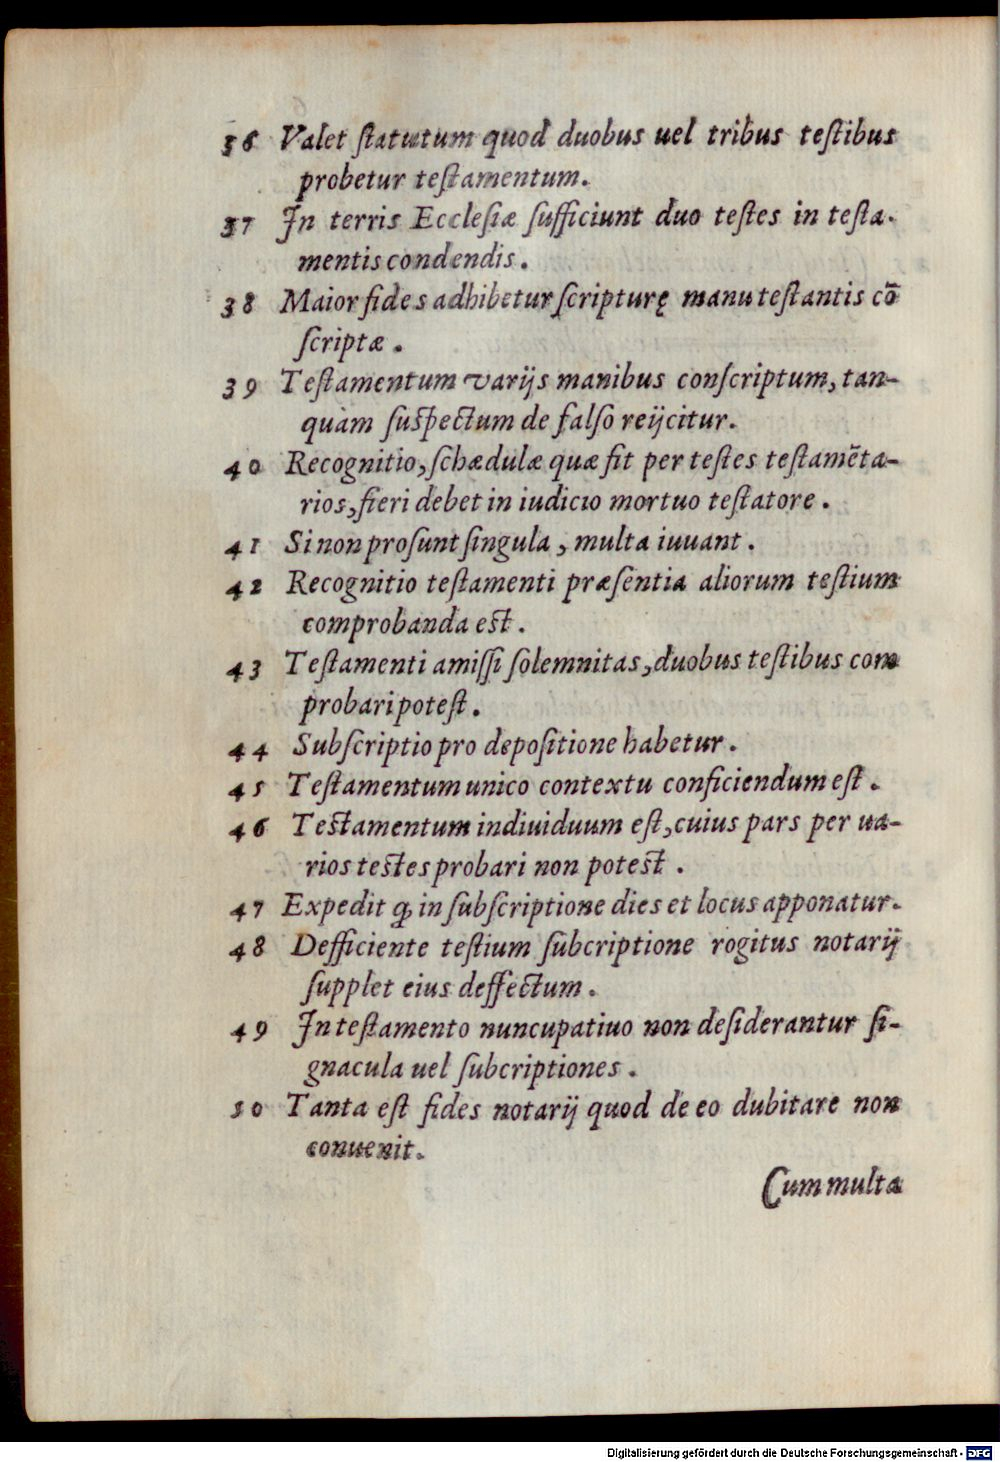 36 Valet ſtatutum quod duobus uel tribus teſtibus
probetur teſtamentum.
37 In terris Eccleſiæ ſufficiunt duo teſtes in teſta-
mentis condendis.
38 Maior fides adhibetur ſcripturę manu teſtantis cō
ſcriptæ.
39 Teſtamentum varijs manibus conſcriptum, tan-
quàm ſuſpectum de falſo reijcitur.
40 Recognitio, ſchædulæ quæ fit per teſtes teſtamēta-
rios, fieri debet in iudicio mortuo teſtatore.
41 Si non proſunt ſingula, multa iuuant.
42 Recognitio teſtamenti præſentia aliorum teſtium
comprobanda eſt.
43 Teſtamenti amiſſi ſolemnitas, duobus teſtibus com
probari poteſt.
44 Subſcriptio pro depoſitione habetur.
45 Teſtamentum unico contextu conficiendum eſt.
46 Teſtamentum indiuiduum eſt, cuius pars per ua-
rios teſtes probari non poteſt.
47 Expedit ꝙ in ſubſcriptione dies et locus apponatur.
48 Defficiente teſtium ſubcriptione rogitus notarij
ſupplet eius deffectum.
49 In teſtamento nuncupatiuo non deſiderantur ſi-
gnacula uel ſubcriptiones.
50 Tanta eſt fides notarij quod de eo dubitare non
conuenit.
Cum multa
Digitalisierung gefördert durch die Deutsche Forschungsgemeinschaft - DFG